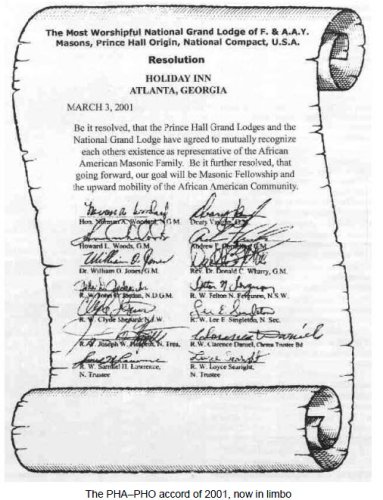 The Most Worshipful National Grand Lodge of F. & A.A.Y.
Masons, Prince Hall Origin, National Compact, U.S.A.
Resolution
HOLIDAY INN
ATLANTA, GEORGIA
MARCH 3, 2001
Be it resolved, that the Prince Hall Grand Lodges and the
National Grand Lodge have agreed to mutually recognize
each others existence as representative of the African
American Masonic Family. Be it further resolved, that
going forward, our goal will be Masonic Fellowship and
the upward mobility of the African American Community.
Hon. N.G.M. Deary
Howard L. Woods, G.M. Andrew
William O. Jones
Dr. William O. Jones, G.M. Rev. Dr. Donald C. Wharry, G.M.
R. W. John N.D.G.M. R. W. Felton N. Ferguson, N.S.W.
Lee E. Singleton
R. W. Clyde N.J.W. R.W. Lee E Singleton, N. Sec.
Clarence Daniel
R.W. Joseph W. N. Trea. R.W. Clarence Daniel, Bd
Loyce Searight
R. W. Samuel H. Lawrence, R. W. Loyce Searight,
N. Trustee N. Trustee
The PHA–PHO accord of 2001, now in limbo